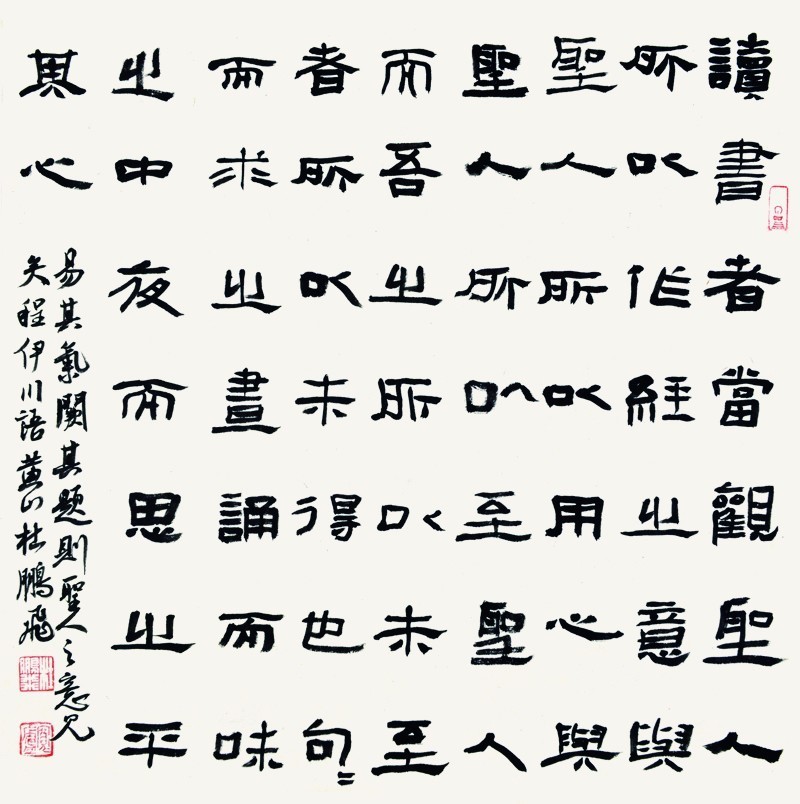 讀書者當觀聖人
所以作經之意與
聖人所以用心與
聖人所以至聖人
而吾之所以未至
者所以未得也句〻
而求之晝誦而味
之中夜而思之平
其心
易其氣闕其題則聖人之意見
矣程伊川語黃山杜鵬飛